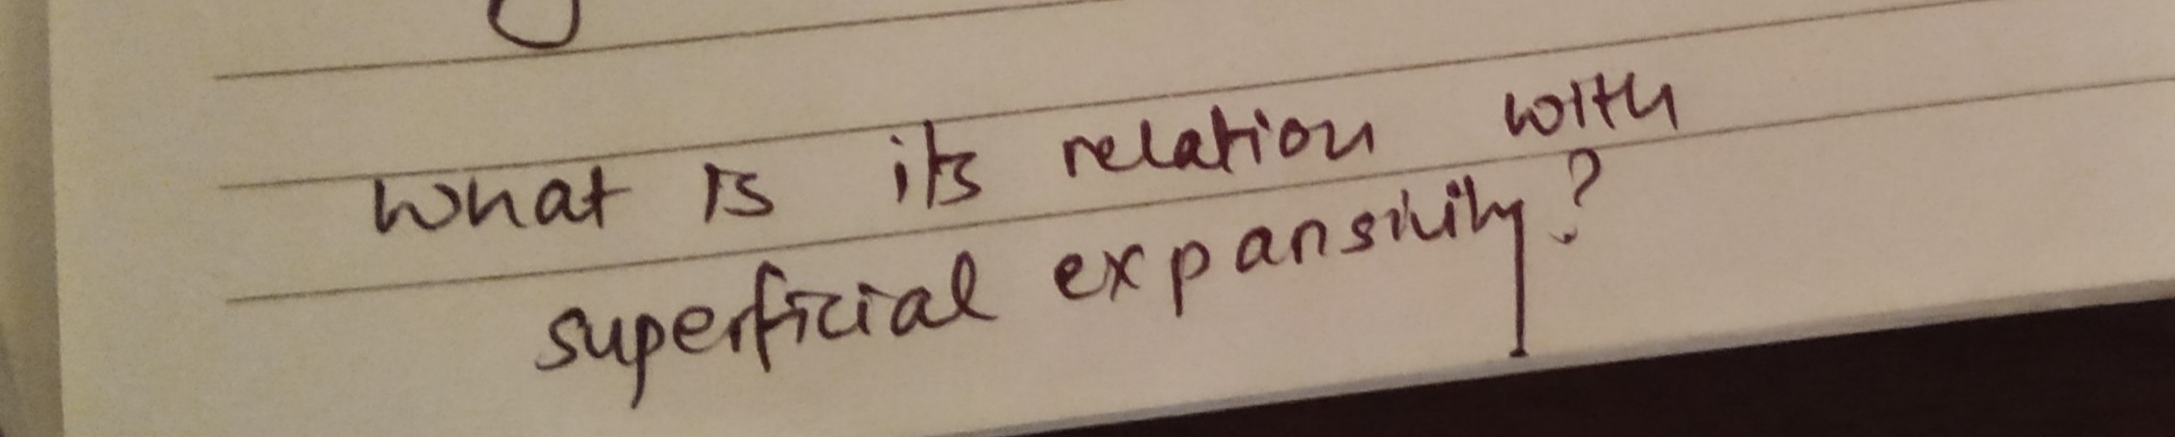 What is its relation with
superficial expansivity?